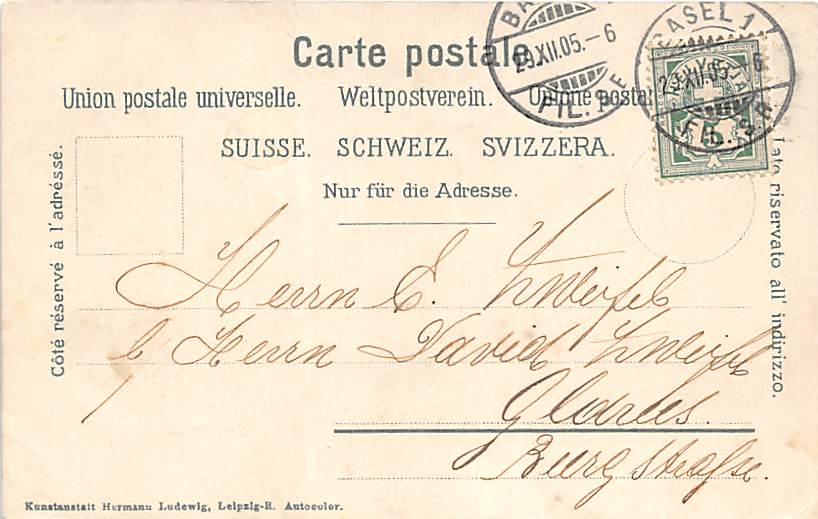 Carte postale
Union postale universelle. Weltpostverein. Unione posta
SUISSE. SCHWEIZ. SVIZZERA.
Nur für die Adresse.
Côté réservé à l'adrésse.
Lato riservato all' indirizzo.
BASEL 1
29.XII.05.-6
FIL. S.B.
BA
29.XII.05.-6
FIL. S.B.
HELVETIA
5
Herrn E. Zweifel
b/ Herrn David Zweifel
Glarus.
Burgstrasse.
Kunstanstalt Hermann Ludewig, Leipzig-R. Autocolor.